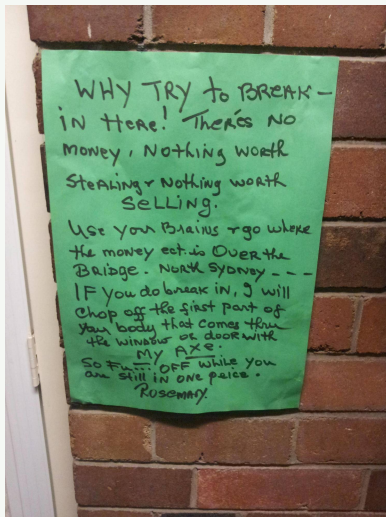 WHY TRY to BREAK -
iN HeRe! THeRes NO
MoNey, NothiNg WoRth
SteAliNg & NothiNg woRth
SelliNg.
Use youR BRaiNs & go wheRe
the moNey ect. is OveR the
BRidge. NoRth SydNey - - -
IF you do bReak in, I will
Chop off the fiRst paRt of
youR body that comes thRu
the wiNdow oR dooR with
My Axe.
So Fu.... OFF while you
aRe still iN oNe peice.
RoseMARy.